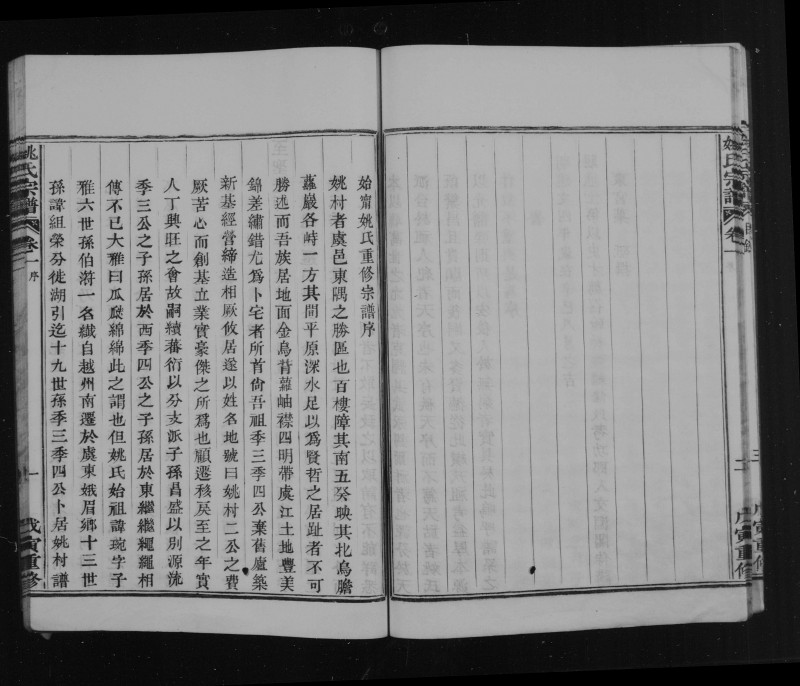 姚氏宗譜
卷一
二
戊寅重修
始甯姚氏重修宗譜序
姚村者虞邑東隅之勝區也百樓障其南五癸映其北鳥膽
蘿巖各峙一方其間平原深水足以為賢哲之居趾者不可
勝述而吾族居地面金烏背蘿岫襟四明帶虞江土地豐美
錦差繡錯尤為卜宅者所首尙吾祖季三季四公棄舊廬築
新基經營締造相厥攸居遂以姓名地號曰姚村二公之費
厥苦心而創基立業實豪傑之所為也顧遷移戾至之年實
人丁興旺之會故嗣續蕃衍以分支派子孫昌盛以別源流
季三公之子孫居於西季四公之子孫居於東繼繼繩繩相
傳不已大雅曰瓜瓞綿綿此之謂也但姚氏始祖諱琬字子
雅六世孫伯洊一名纖自越州南遷於虞東娥眉鄉十三世
孫諱組榮分徙湖引迄十九世孫季三季四公卜居姚村譜
姚氏宗譜
卷一
序
一
戊寅重修